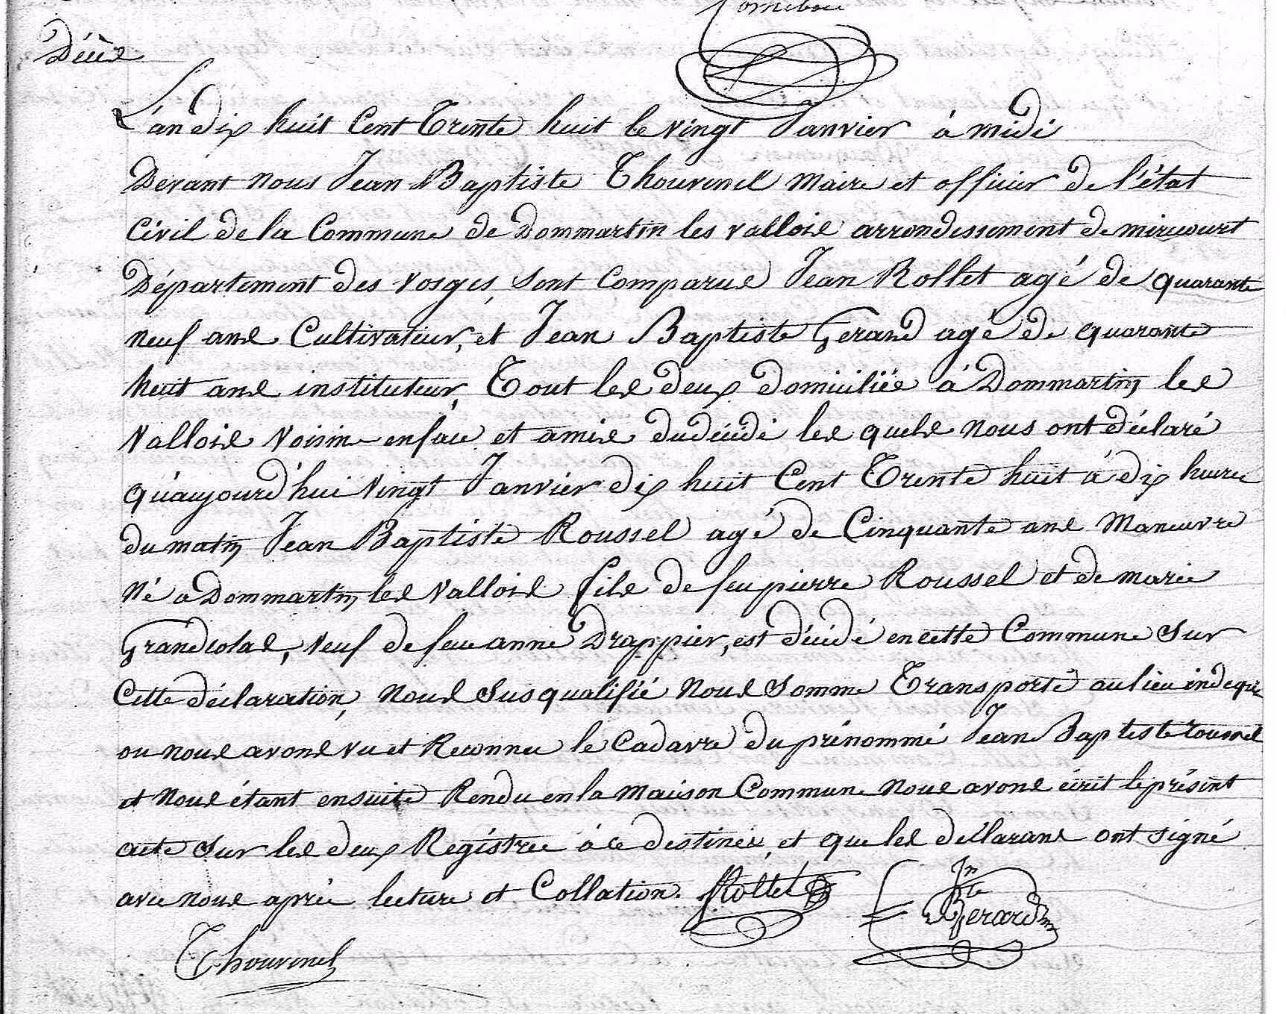 Décès
L'an dix huit Cent Trente huit le vingt Janvier à midi
Devant nous Jean Baptiste Thouvenel Maire et officier de l'état
Civil de la Commune de Dommartin les vallois arrondissement de mirecourt
Département des vosges sont comparus Jean Rollet agé de quarante
neuf ans Cultivateur, et Jean Baptiste Gerard agé de quarante
huit ans instituteur, Tout les deux domiciliés à Dommartin les
Vallois Voisin en face et amis du décédé les quels nous ont déclaré
qu'aujourd'hui vingt Janvier dix huit Cent Trente huit à dix heures
du matin Jean Baptiste Roussel agé de Cinquante ans Manœuvre
Né a Dommartin les Vallois fils de feu pierre Roussel et de marie
Grandcolas, veuf de feue anne Drappier, est décédé en cette Commune sur
Cette déclaration, nous susqualifié nous somme Transporté au lieu indeque
ou nous avons vu et Reconnu le Cadavre du prénommé Jean Baptiste roussel
et nous étant ensuite Rendu en la maison Commune nous avons écrit le présent
acte sur les deux Registres à ce destinés et que les déclarans ont signé
avec nous après lecture et Collation. Rollet Jn Bte Gerard
Thouvenel